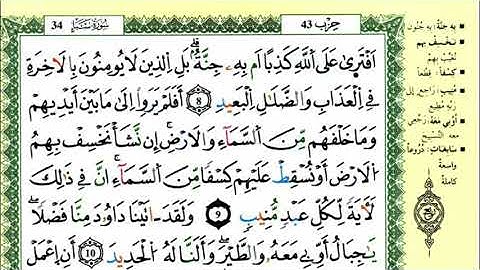 حزب 43
34 سورة سبإ
اَفْتَرَىٰ عَلَى اَللَّهِ كَذِبًا اَم بِهِۦ جِنَّةٌۢ بَلِ اِلذِينَ لَا يُومِنُونَ بِالَاخِرَةِ
فِے اِلْعَذَابِ وَالضَّلَٰلِ اِلْبَعِيدِ 8 أَفَلَمْ يَرَوِاْ اِلَىٰ مَا بَيْنَ أَيْدِيهِمْ
وَمَا خَلْفَهُم مِّنَ اَلسَّمَآءِ وَالَارْضِ إِن نَّشَأْ نَخْسِفْ بِهِمُ
اُلَارْضَ أَوْ نُسْقِطْ عَلَيْهِمْ كِسْفًا مِّنَ اَلسَّمَآءِ انَّ فِے ذَٰلِكَ
لَأٓيَةً لِّكُلِّ عَبْدٍ مُّنِيبٍ 9 وَلَقَدَ اٰتَيْنَا دَاوُۥدَ مِنَّا فَضْلًا
يَٰجِبَالُ أَوِّبِے مَعَهُۥ وَالطَّيْرَ وَأَلَنَّا لَهُ اُلْحَدِيدَ 10 أَنِ اِعْمَلْ
به جنة: به جنون
نخسف بهم
نغيب بهم
كسفا: قطعا
منيب: راجع إلى
ربه مطيع
أوبي معه: رجعي
معه التسبيح
سابغات: دروعا
واسعة
كاملة